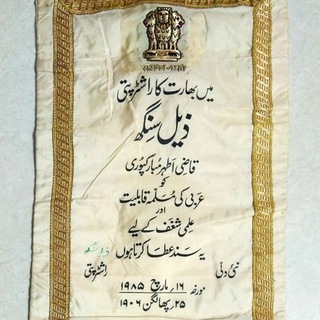 میں بھارت کا راشٹرپتی
ذیل سنگھ
قاضی اطہر مبارکپوری
کو
عربی کی مسلمہ قابلیت
اور
علمی شغف کے لیے
یہ سند عطا کرتا ہوں
نئی دلی
راشٹرپتی
مورخہ ۱۶؍ مارچ ۱۹۸۵
۲۵؍ پھالگن ۱۹۰۶